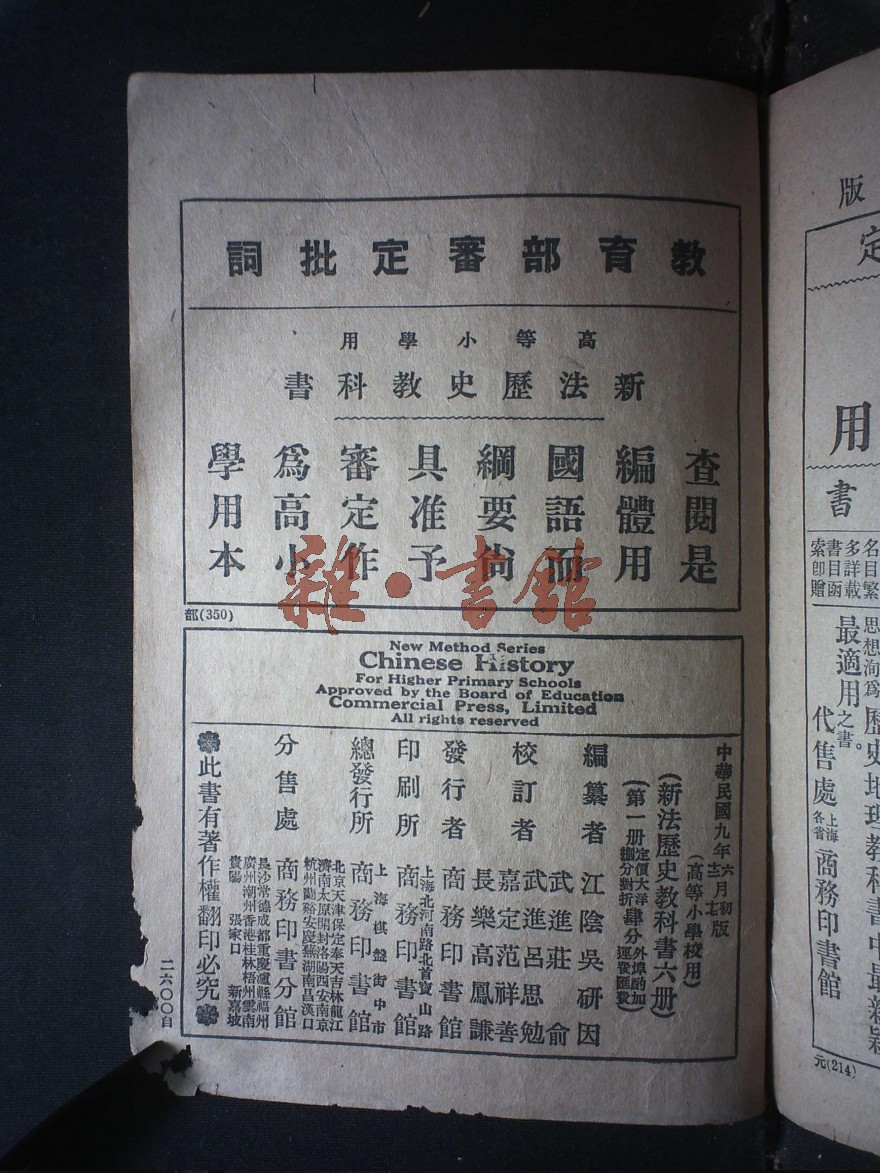 教育部審定批詞
高等小學用
新法歷史教科書
查閱是
編體用
國語而
綱要尚
具准予
審定作
為高小
學用本
部(350)
雜·書館
New Method Series
Chinese History
For Higher Primary Schools
Approved by the Board of Education
Commercial Press, Limited
All rights reserved
中華民國九年六月初版
(高等小學校用)
(新法歷史教科書六冊)
(第一冊定價大洋捌分對折肆分外埠酌加運費匯費)
編纂者 江陰吳研因
武進莊俞
校訂者 武進呂思勉
嘉定范祥善
長樂高鳳謙
發行者 商務印書館
印刷所 上海北河南路北首寶山路
商務印書館
總發行所 上海棋盤街中市
商務印書館
分售處 北京天津保定奉天吉林龍江
濟南太原開封洛陽西安南京
杭州蘭谿安慶蕪湖南昌漢口
商務印書分館
長沙常德成都重慶瀘縣福州
廣州潮州香港桂林梧州雲南
貴陽 張家口 新嘉坡
此書有著作權翻印必究
二六〇〇自
版
定
用
書
名目繁
多詳載
書目函
索卽贈
思想洵爲
歷史地理教科書中最新穎
最適用之書。
代售處 上海各省 商務印書館
元(214)